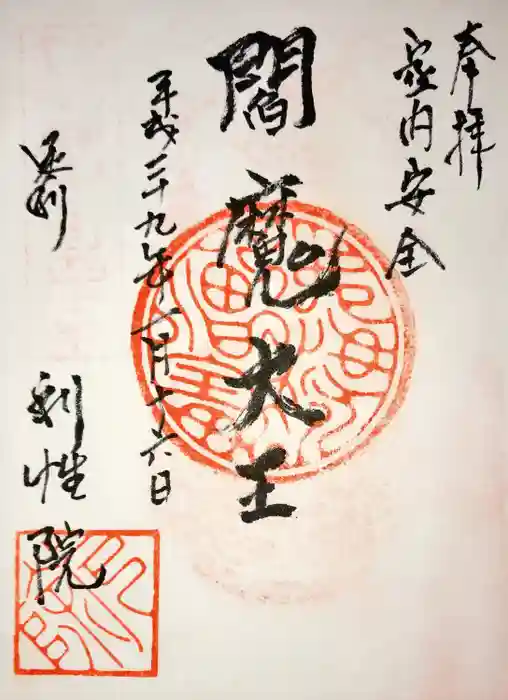 奉拝
家内安全
閻魔大王
平成二十九年一月十六日
足利
利性院